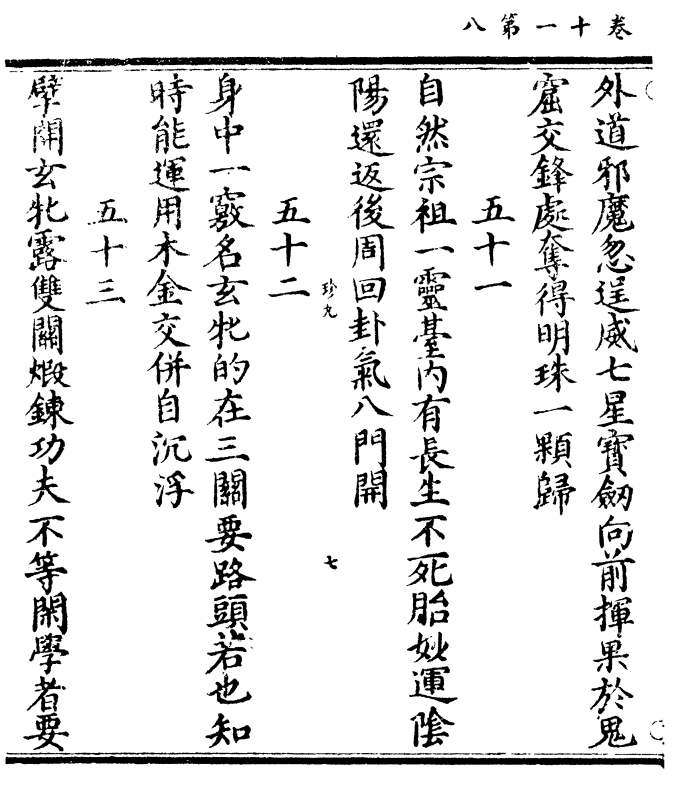 卷十一第八
外道邪魔忽逞威七星寶劒向前揮果於鬼
窟交鋒處奪得明珠一顆歸
五十一
自然宗祖一靈臺內有長生不死胎妙運陰
陽還返後周回卦氣八門開
五十二
珍九
七
身中一竅名玄牝的在三關要路頭若也知
時能運用木金交併自沉浮
五十三
擘開玄牝露雙關煅鍊功夫不等閑學者要